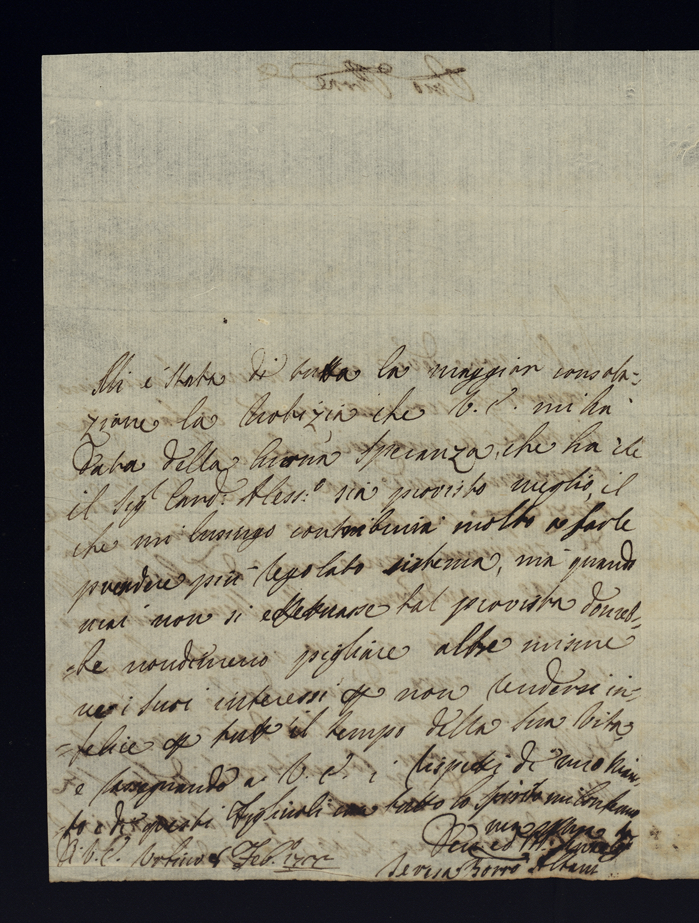 Mi è stata di tutta la maggior consola-
zione la Notizia che V. E. mi hà
data della buona speranza, che ha che
il Sig.r Card. Aless.o sia provisto meglio, il
che mi lusingo contribuirà molto a farle
prendere più regolato sistema, mà quando
mai non si effettuasse tal provista dovreb-
be nondimeno pigliare altre misure
ne i suoi interessi non rendersi in-
felice tutt' il tempo della sua Vita
e rassegnando a V. E. i rispetti di mio Mari-
to e di questi Figlioli con tutto lo spirito mi confermo
Di V. E. Urbino Feb.
Teresa Borro. Albani